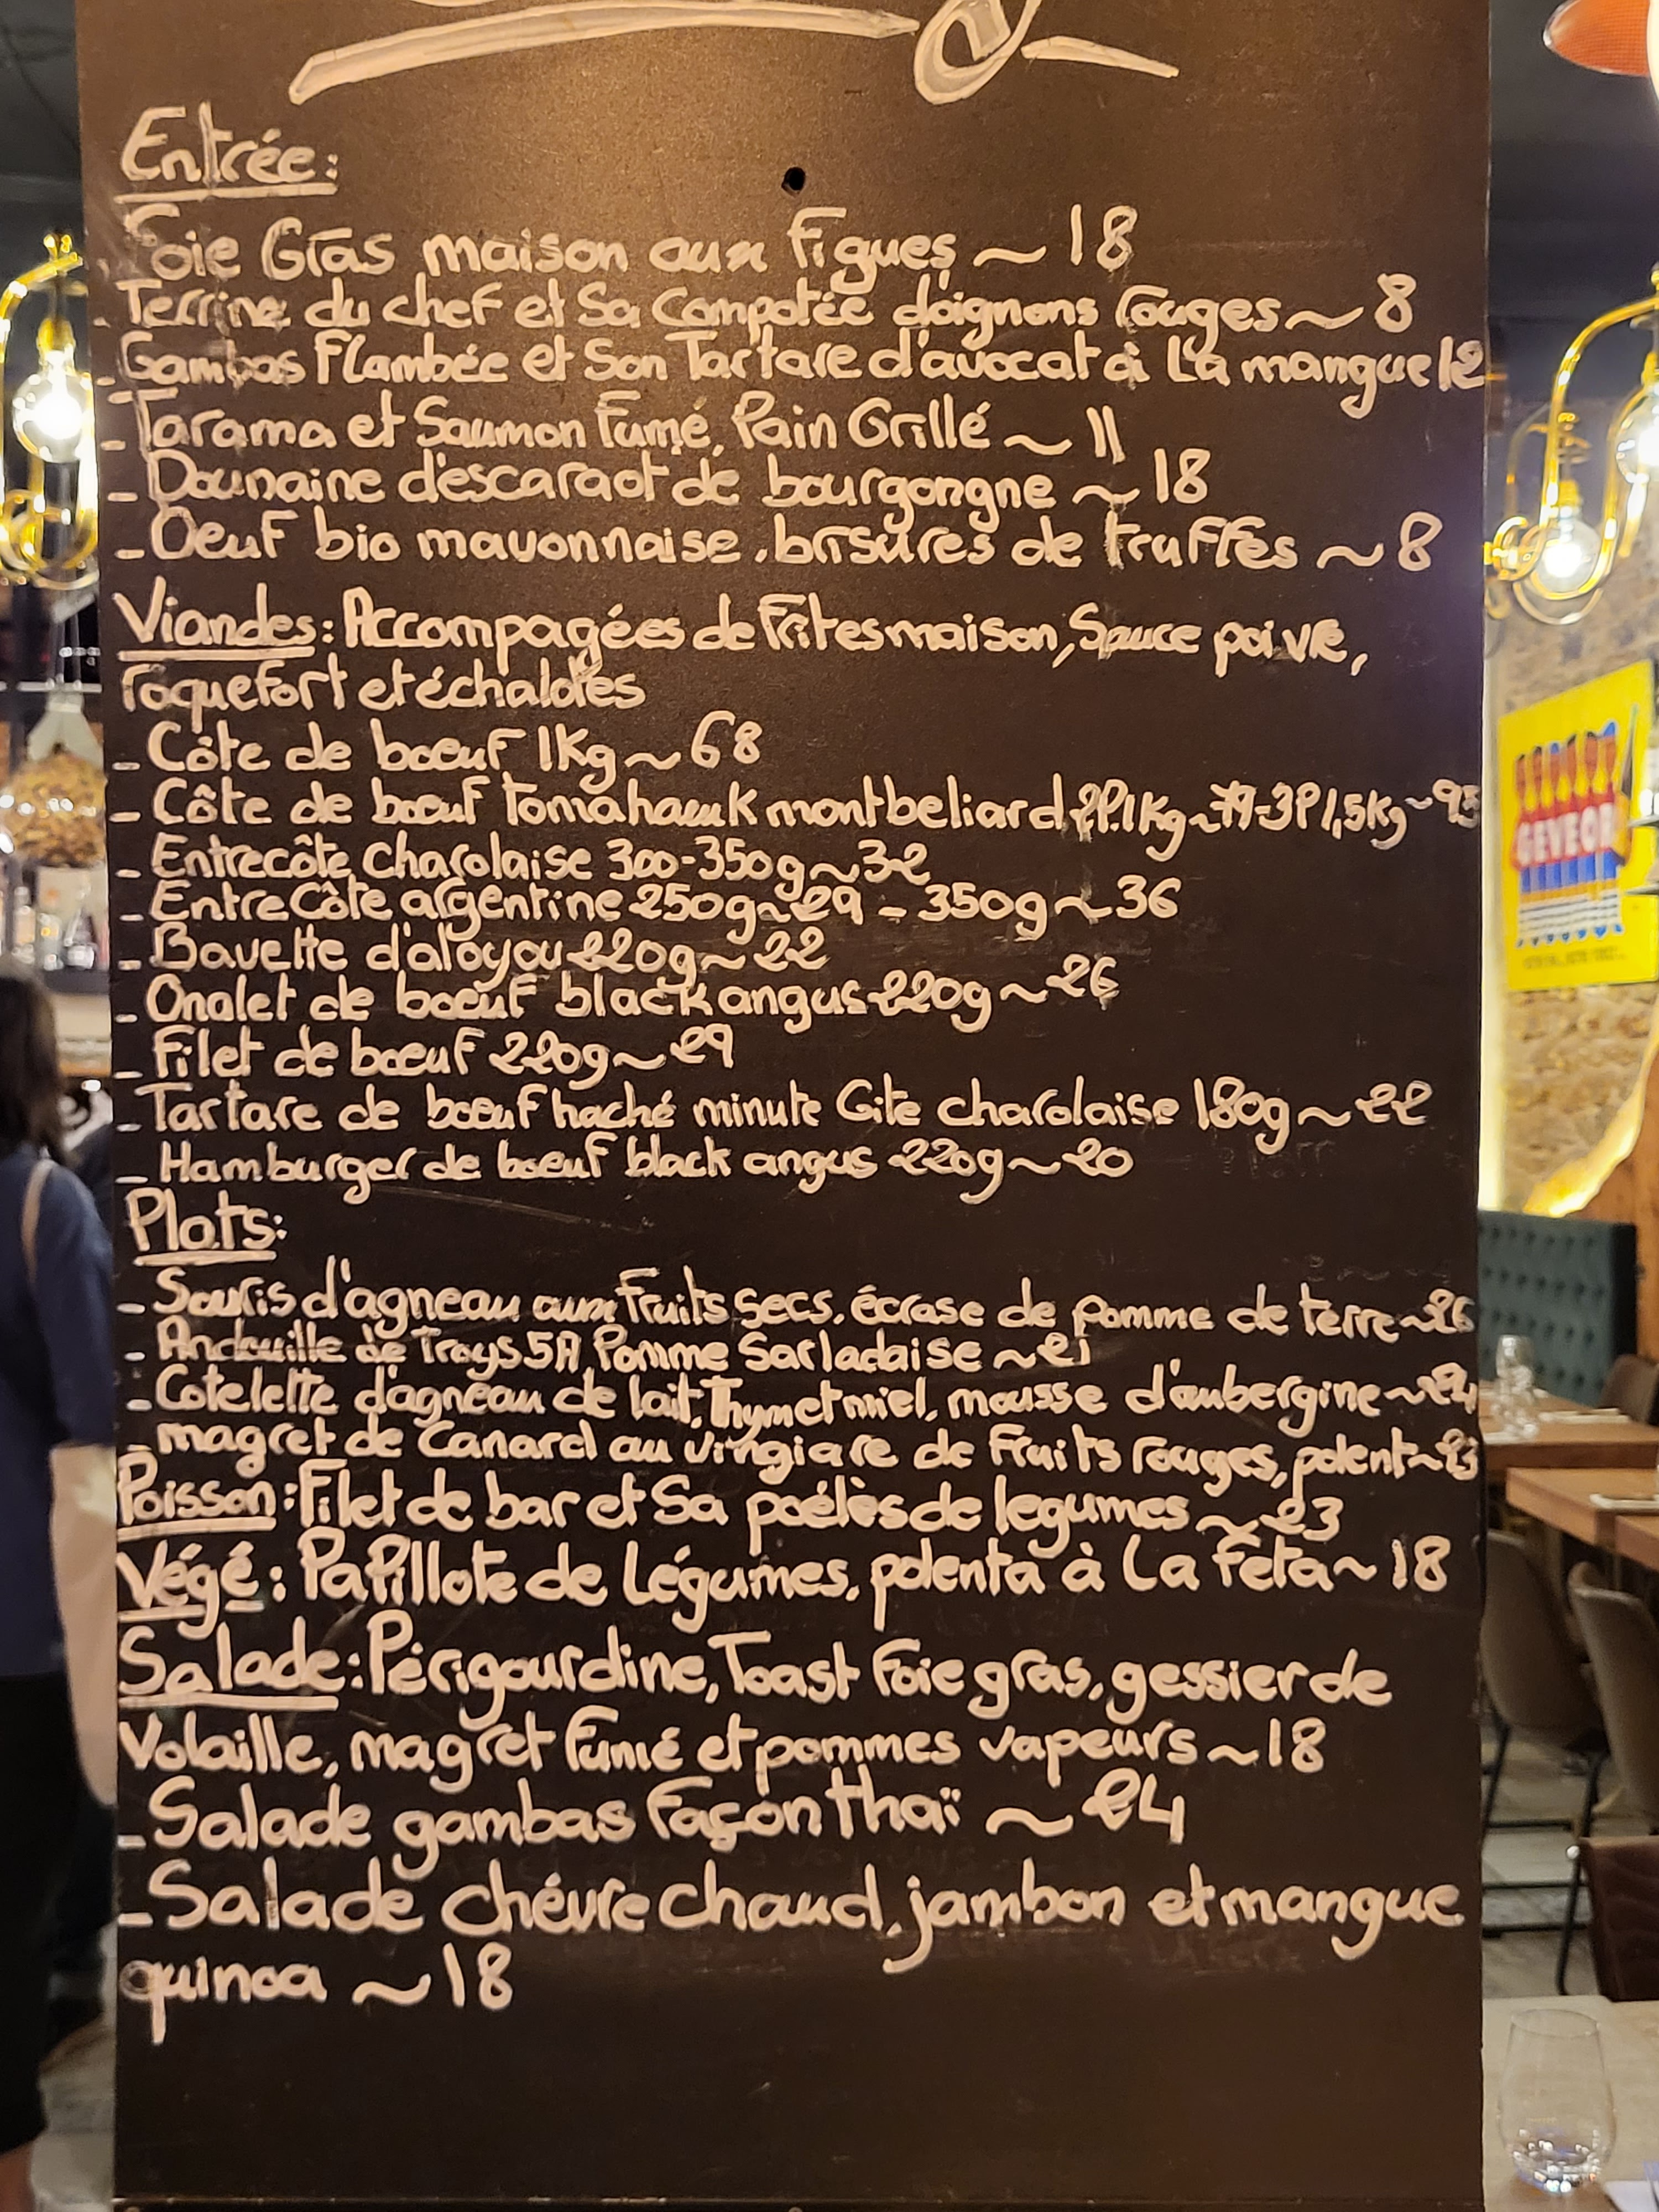 Entrée:
Foie Gras maison aux figues ~ 18
- Terrine du chef et Sa Compotée d'oignons rouges ~ 8
- Gambas Flambée et Son Tartare d'avocat à La mangue 12
- Tarama et Saumon Fumé, Pain Grillé ~ 11
- Dounaine d'escargot de bourgongne ~ 18
- Oeuf bio mayonnaise, brisures de truffes ~ 8
Viandes: Accompagées de Frites maison, Sauce poivre,
roquefort et échalotes
- Côte de boeuf 1Kg ~ 68
- Côte de boeuf Tomahawk montbeliard 2P.1Kg ~ 79 - 3P 1,5Kg ~ 95
- Entrecôte charolaise 300-350g ~ 32
- Entrecôte argentine 250g ~ 29 - 350g ~ 36
- Bavette d'aloyau 220g ~ 22
- Onglet de boeuf black angus 220g ~ 26
- Filet de boeuf 220g ~ 29
- Tartare de boeuf haché minute Gite charolaise 180g ~ 22
- Hamburger de boeuf black angus 220g ~ 20
Plats:
- Souris d'agneau aux fruits secs, écrase de pomme de terre ~ 26
- Andouille de Troys 5A Pomme Sarladaise ~ 21
- Cotelette d'agneau de lait, Thym et miel, mousse d'aubergine ~ 24
- magret de Canard au vingiare de Fruits rouges, polent ~
Poisson: Filet de bar et Sa poélès de legumes ~ 23
Végé: Papillote de Légumes, polenta à La Feta ~ 18
Salade: Périgourdine, Toast foie gras, gessier de
Volaille, magret Fumé et pommes vapeurs ~ 18
- Salade gambas façon thaï ~ 24
- Salade chévre chaud, jambon et mangue
quinoa ~ 18
GEVEOR